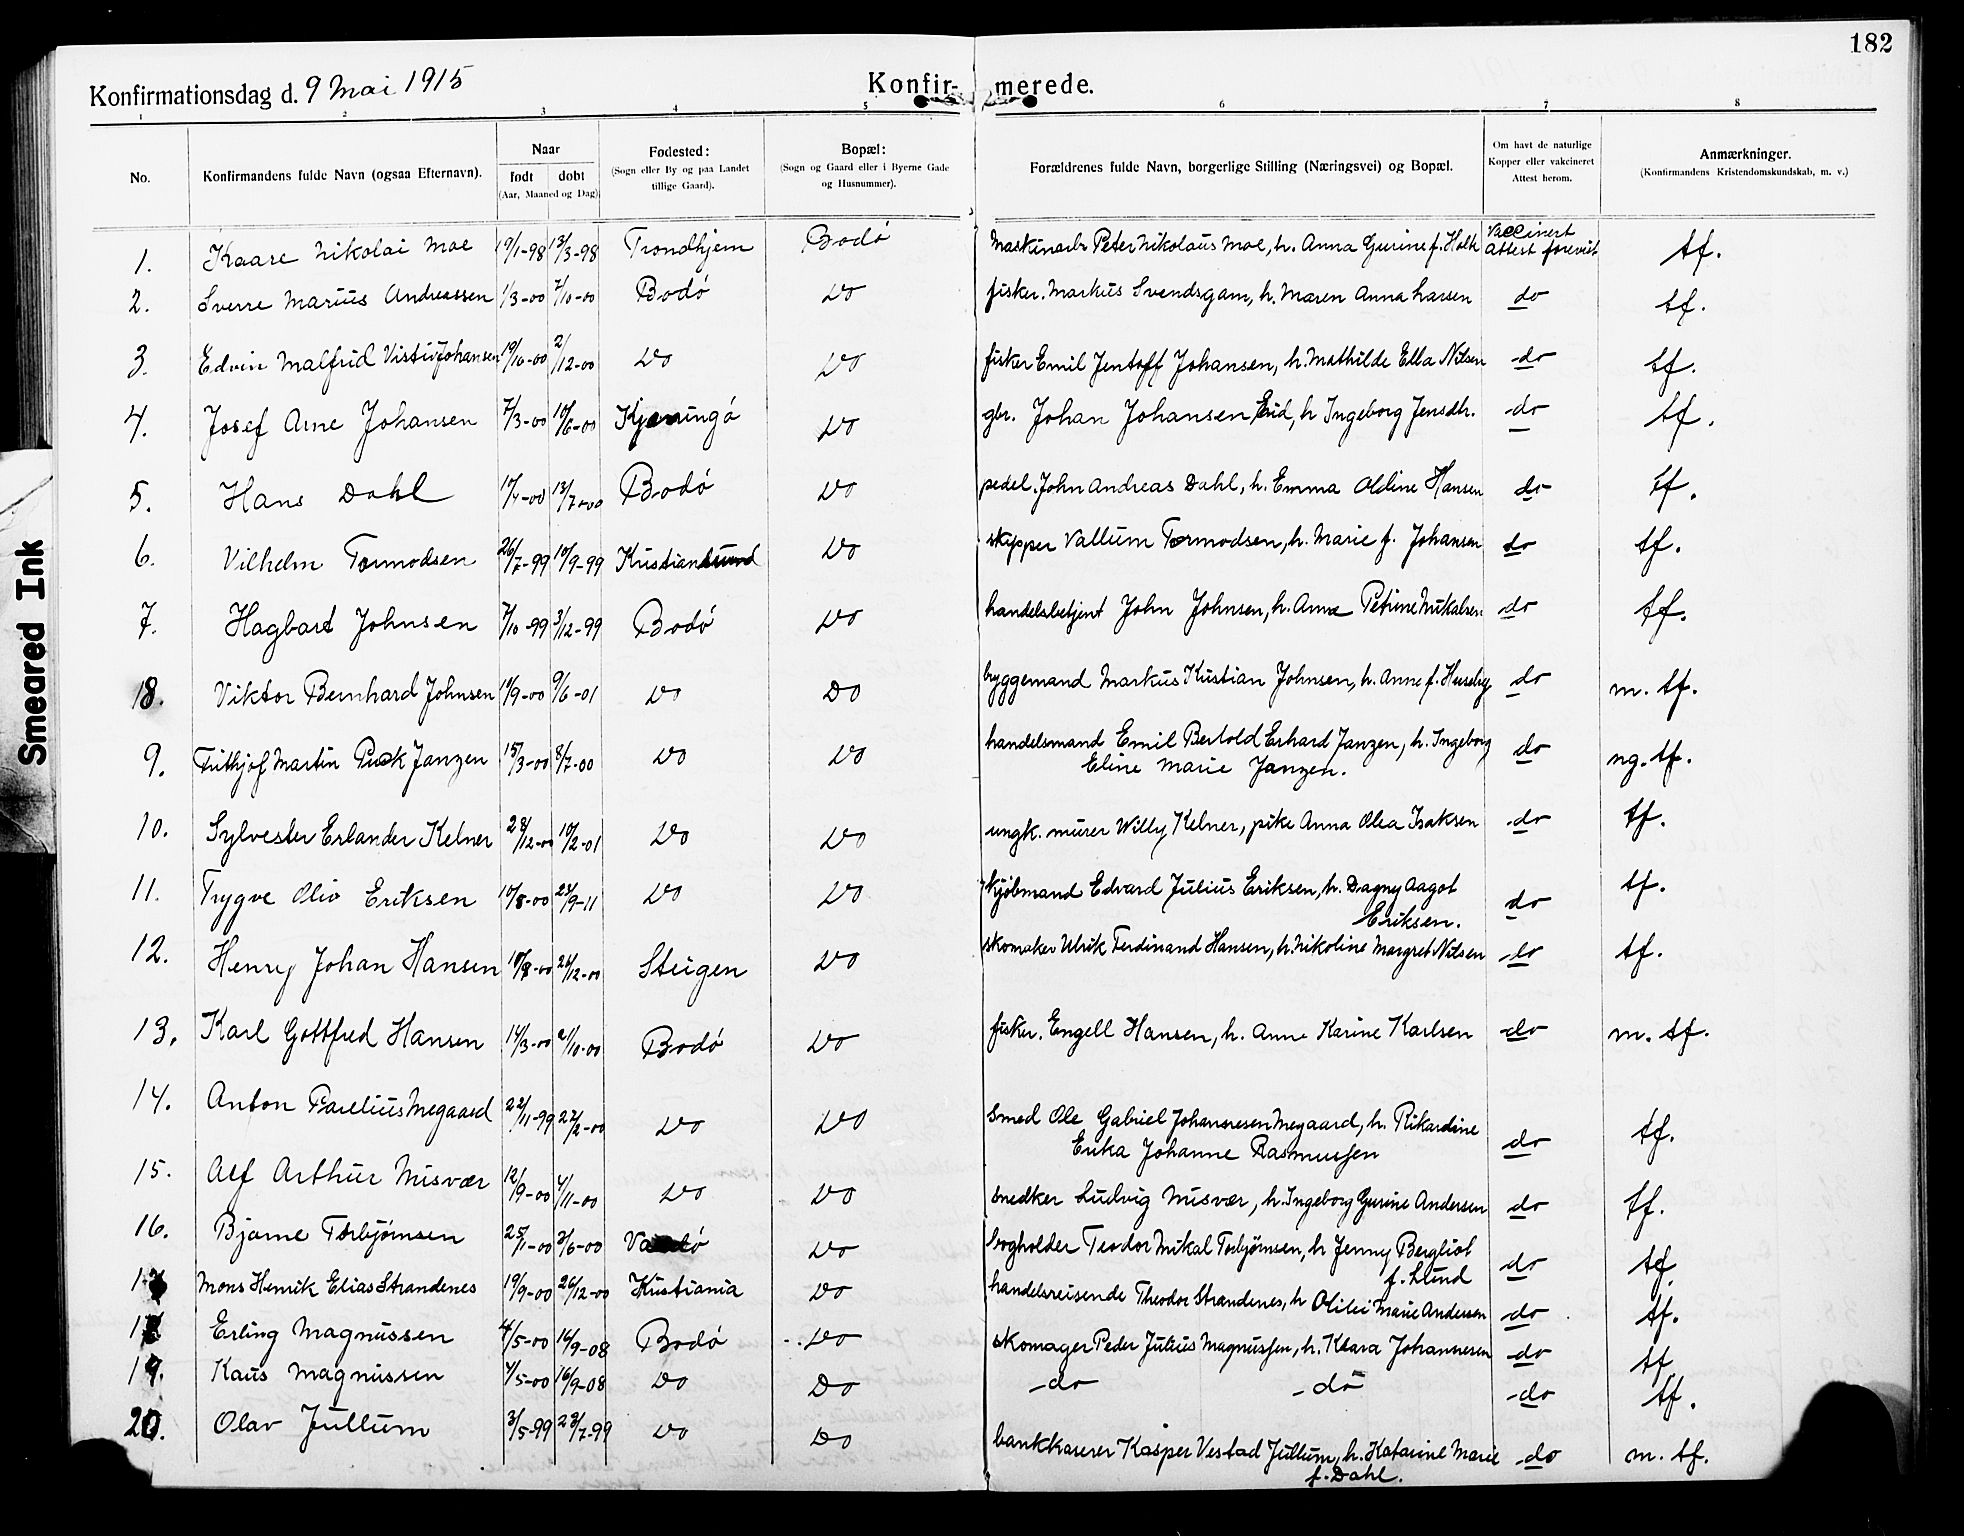 182
Konfirmationsdag d. 9 Mai 1915
Konfir- merede.
1 2 3 4 5 6 7 8
No.
Konfirmandens fulde Navn (ogsaa Efternavn).
Naar
født døbt
(Aar, Maaned og Dag)
Fødested:
(Sogn eller By og paa Landet
tillige Gaard).
Bopæl:
(Sogn og Gaard eller i Byerne Gade
og Husnummer).
Forældrenes fulde Navn, borgerlige Stilling (Næringsvei) og Bopæl.
Om havt de naturlige
Kopper eller vakcineret
Attest herom.
Anmærkninger.
(Konfirmandens Kristendomskundskab, m. v.)
Vaccinert
1. Kaare Nikolai Moe 19/1-98 13/3-98 Trondhjem Bodø Maskinarb Peter Nikolaus Moe, h. Anna Gurine f. Holth Attest forevist tf.
2. Sverre Marius Andreassen 1/3-00 7/10-00 Bodø Do fisker. Markus Svendsgam, h. Maren Anna Larsen do tf.
3. Edvin Malfrid Johansen 19/10-00 2/12-00 Do Do fisker Emil Jentoff Johansen, h. Mathilde Ella Nilsen do tf.
4. Josef Arne Johansen 7/3-00 10/6-00 Kjerringø Do gbr. Johan Johansen, h Ingeborg Jensdtr. do tf.
5. Hans Dahl 13/7-00 Bodø Do pedel. John Andreas Dahl, h. Emma Oldine Hansen do tf.
6. Vilhelm Tormodsen 26/7-99 10/9-99 Kristiansund Do skipper Vallum Tormodsen, h. Marie f. Johansen do tf.
7. Hagbart Johnsen 7/10-99 3/12-99 Bodø Do handelsbetjent John Johnsen, h. Anna Petrine Mikalsen do tf.
8. Viktor Bernhard Johnsen 11/9-00 9/6-01 Do Do byggemand Markus Kristian Johnsen, h. Anne f. Huseby do m. tf.
9. Frithjof Martin Peck Janzen 15/3-00 8/7-00 Do Do handelsmand Emil Bertold Erhard Janzen, h. Ingeborg do ng. tf.
Eline Marie Janzen.
10. Sylvester Erlander Kelner 28/12-00 10/2-01 Do Do ungk. murer Willy Kelner, pike Anna Olea Isaksen do tf.
11. Trygve Oliv Eriksen 10/8-00 24/9-11 Do Do kjøbmand Edvard Julius Eriksen, h. Dagny Aagot do tf.
Eriksen.
12. Henry Johan Hansen 26/12-00 Steigen Do skomaker Ulrik Ferdinand Hansen, h. Nikoline Margret Nilsen do tf.
13. Karl Gottfred Hansen 14/3-00 21/10-00 Bodø Do fisker. Engell Hansen, h. Anne Karine Karlsen do m. tf.
14. Anton Parelius Megaard 22/11-99 22/2-00 Do Do Smed Ole Gabriel Johannesen Megaard, h. Rikardine do tf.
Erika Johanne Rasmussen
15. Alf Arthur Misvær 4/11-00 Do Do snedker Ludvig Misvær, h. Ingeborg Gurine Andersen do tf.
16. Bjarne Torbjørnsen 25/1-00 3/6-00 Do bogholder Teodor Mikal Torbjørnsen, h Jenny Bergliot do tf.
f. Lund
17 Mons Henrik Elias Strandenes 19/9-00 26/12-00 Kristiania Do handelsreisende Theodor Strandenes, h Marie Andersen do tf.
18 Erling Magnussen 4/5-00 16/9-08 Bodø Do skomager Peder Julius Magnussen, h. Klara Johannesen do tf
19. Klaus Magnussen 4/5-00 16/9-08 Do Do -do -do -do tf.
20. Olav Jullum 3/5-99 23/7-99 Do Do bankkaserer Kasper Vestad Jullum, h. Katarine Marie do m. tf.
f. Dahl.
Smeared Ink